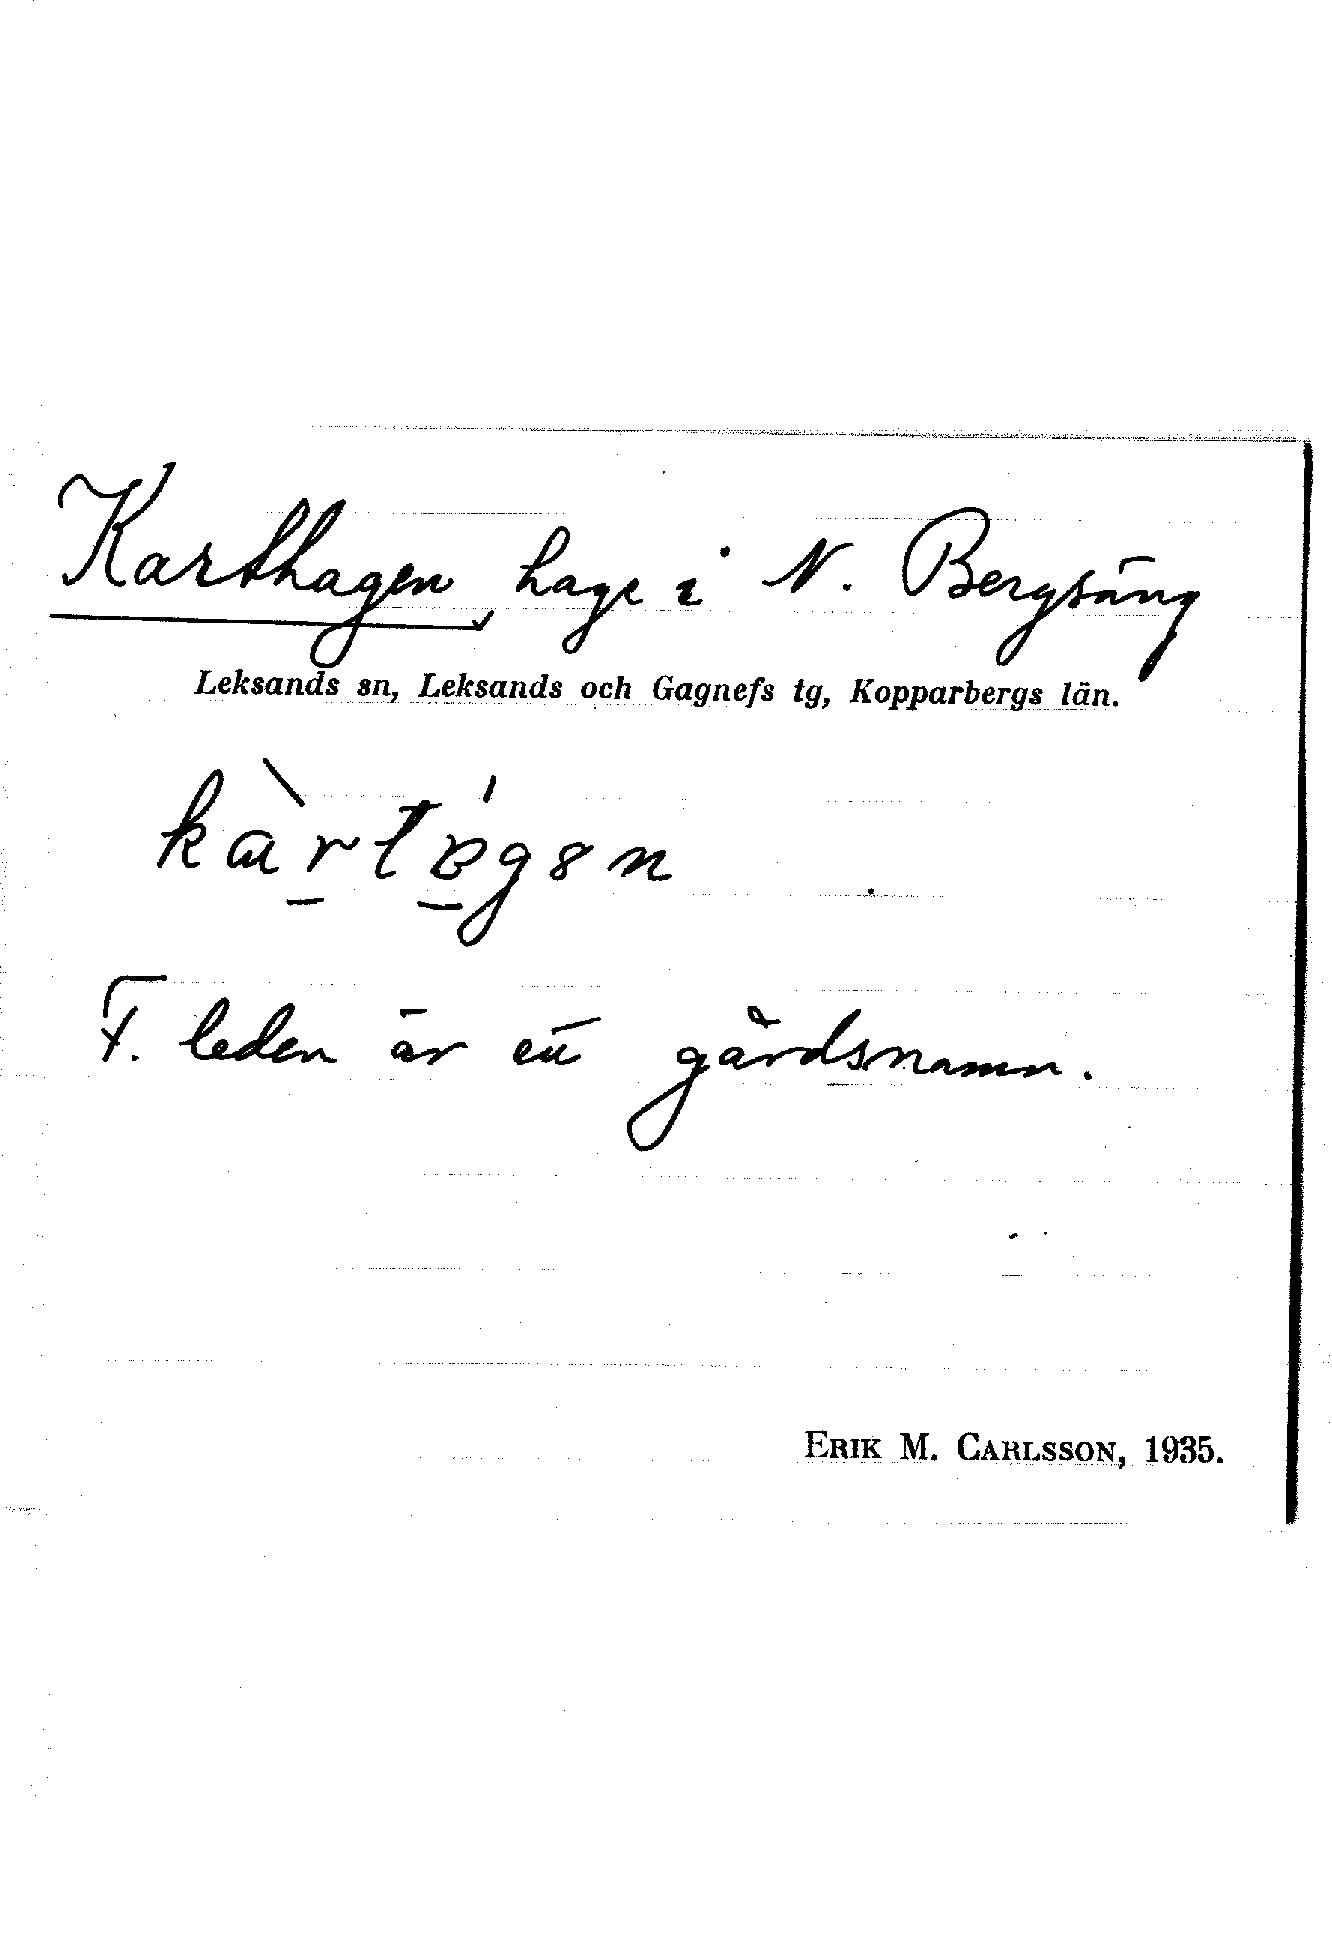 Karthagen, hage i N. Bergsäng
Leksands sn, Leksands och Gagnefs tg, Kopparbergs län.
F. leden är ett gårdsnamn.
ERIK M. CARLSSON, 1935.